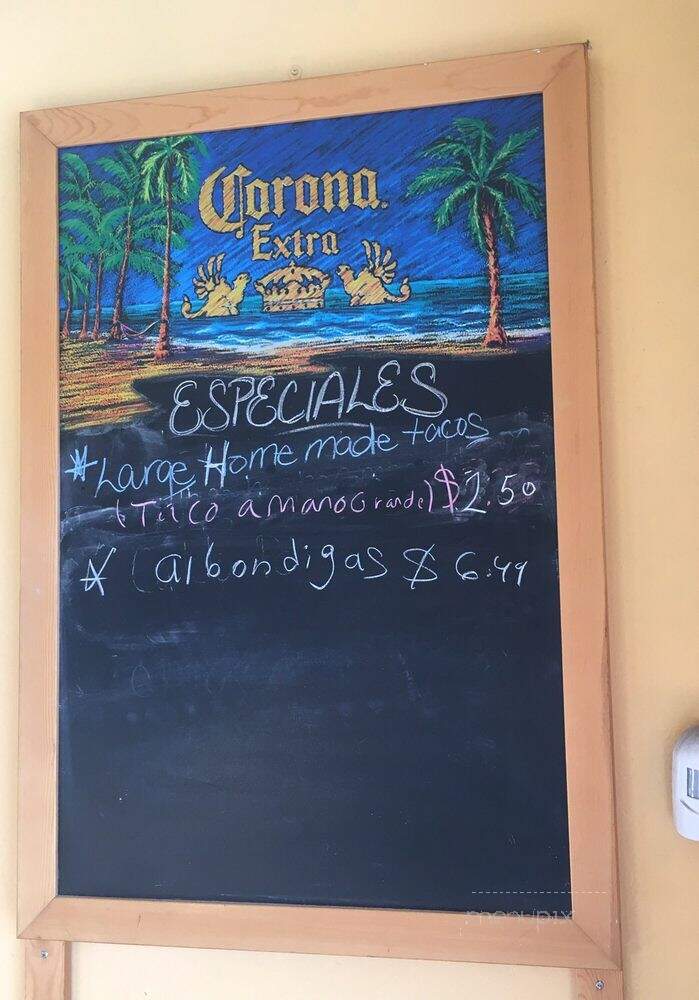 Corona
Extra
ESPECIALES
* Large Home made tacos
(Taco a mano Grande) $2.50
* albondigas $ 6.49
menupix